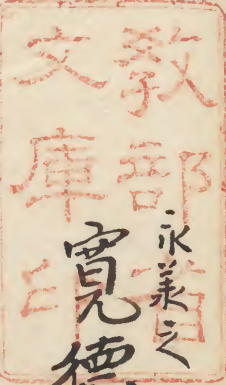 教部省
文庫印
永之
寛徳